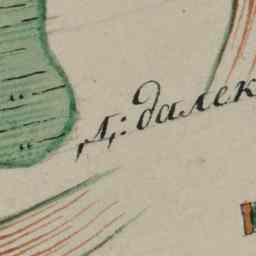 Д: далек